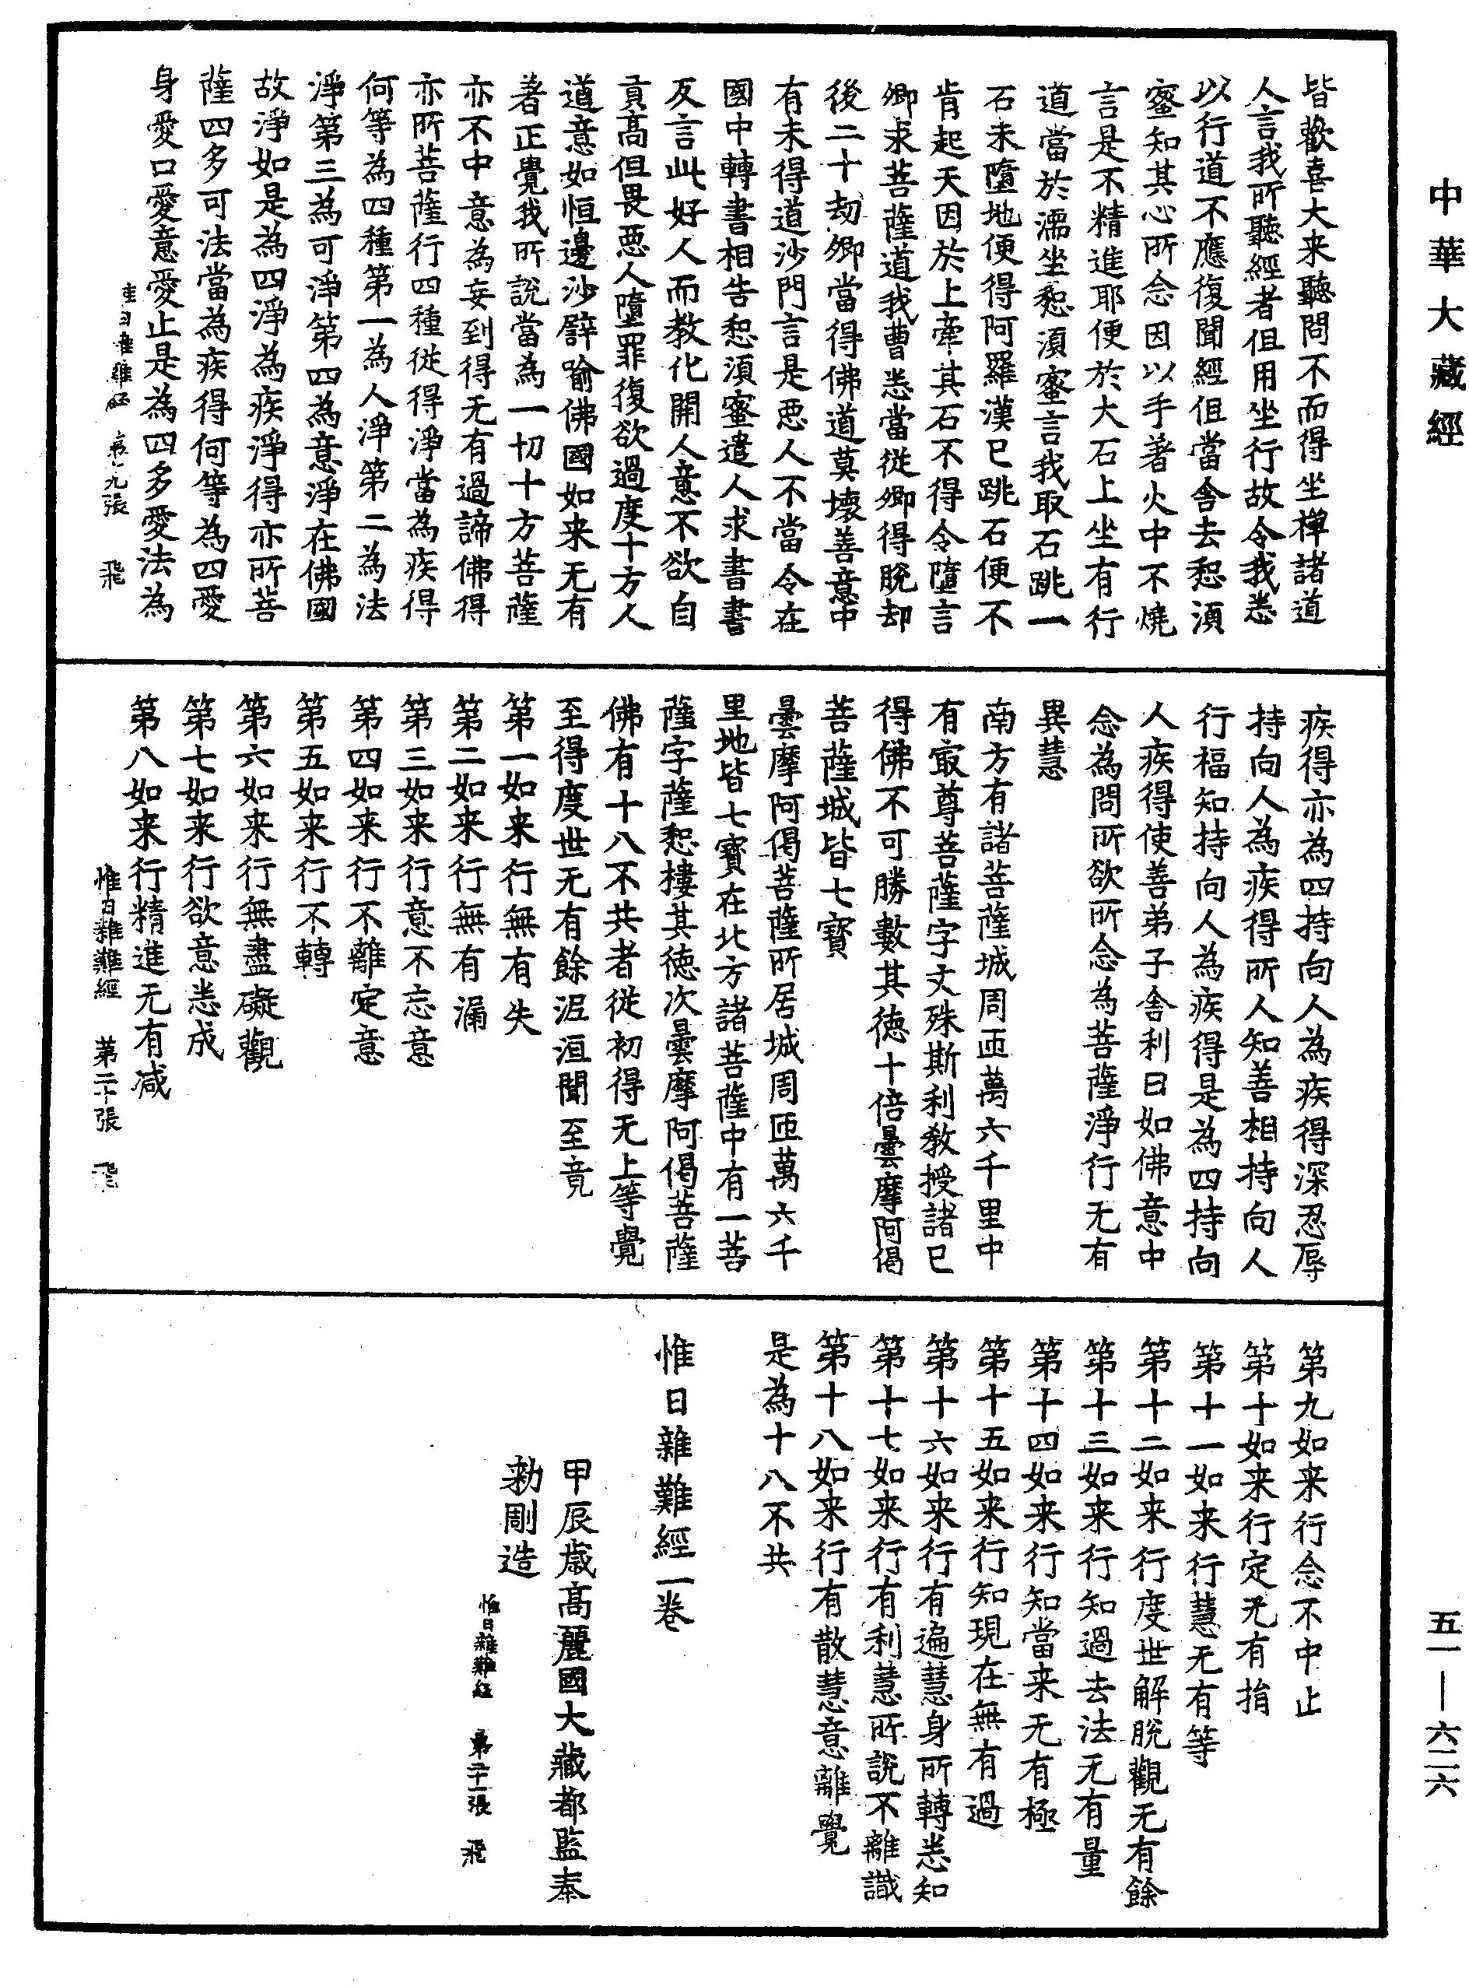 中華大藏經
皆歡喜大来聽問不而得坐禪諸道
人言我所聽經者但用坐行故令我悉
以行道不應復聞經但當舍去惒湏
蜜知其心所念因以手著火中不燒
言是不精進耶便於大石上坐有行
道當於濡坐惒湏蜜言我取石跳一
石未墮地便得阿羅漢已跳石便不
肯起天因於上牽其石不得令墮言
卿求菩薩道我曹悉當從卿得脫却
後二十劫卿當得佛道莫壞善意中
有未得道沙門言是惡人不當令在
國中轉書相告惒湏蜜遣人求書書
反言此好人而教化開人意不欲自
貢高但畏惡人墮罪復欲過度十方人
道意如恒邊沙譬喻佛國如来无有
著正覺我所說當為一切十方菩薩
亦不中意為妄到得无有過諦佛得
亦所菩薩行四種從得淨當為疾得
何等為四種第一為人淨第二為法
淨第三為可淨第四為意淨在佛國
故淨如是為四淨為疾淨得亦所菩
薩四多可法當為疾得何等為四愛
身愛口愛意愛止是為四多愛法為
惟曰雜難經 第十九張 飛
疾得亦為四持向人為疾得深忍辱
持向人為疾得所人知善相持向人
行福知持向人為疾得是為四持向
人疾得使善弟子舍利曰如佛意中
念為問所欲所念為菩薩淨行无有
異慧
南方有諸菩薩城周匝萬六千里中
有㝡尊菩薩字文殊斯利教授諸已
得佛不可勝數其徳十倍曇摩阿偈
菩薩城皆七寶
曇摩阿偈菩薩所居城周匝萬六千
里地皆七寶在北方諸菩薩中有一菩
薩字薩惒樓其徳次曇摩阿偈菩薩
佛有十八不共者從初得无上等覺
至得度世无有餘泥洹聞至竟
第一如来行無有失
第二如来行無有漏
第三如来行意不忘意
第四如来行不離定意
第五如来行不轉
第六如来行無盡礙觀
第七如来行欲意悉成
第八如来行精進无有减
惟曰雜難經 第二十張 飛
第九如来行念不中止
第十如来行定无有揹
第十一如来行慧无有等
第十二如来行度世解脫觀无有餘
第十三如来行知過去法无有量
第十四如来行知當来无有極
第十五如来行知現在無有過
第十六如来行有遍慧身所轉悉知
第十七如来行有利慧所說不離識
第十八如来行有散慧意離覺
是為十八不共
惟日雜難經一卷
甲辰歲高麗國大藏都監奉
勅剛造
惟曰雜難經 第二十一張 飛
五一—六二六